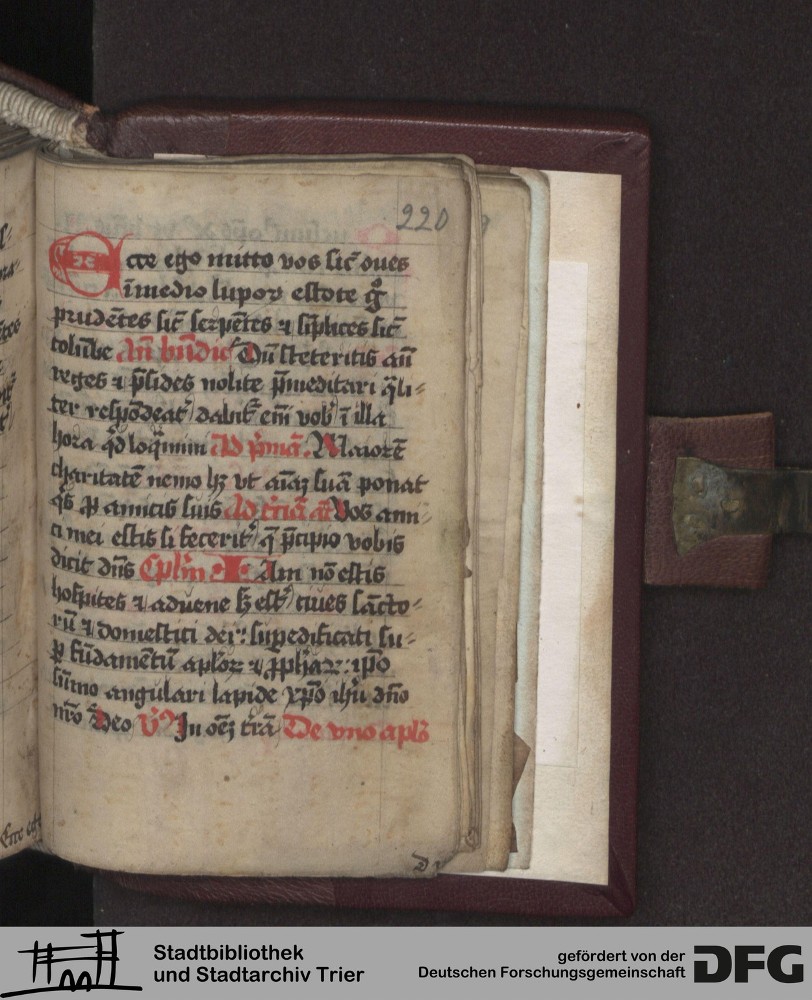 220
Ecce ego mitto vos sic̄ oues
ī medio lupoꝝ estote g̊
prudētes sic̄ serpētes ⁊ sīplices sic̄
colūbe Añ bn̄dic̄ Dū steteritis añ
reges ⁊ p̄sides nolite p̄meditari q̄li⸗
ter respōdeat᷒ dabit᷒ em̄ vob᷒ ī illa
hora qd̄ loq̄mini Ad p̄mā. Maiorē
charitatē nemo hꝫ vt aīaꝫ suā ponat
q̇s ꝓ amicis suis Ad t̄ciā añ Vos ami⸗
ci mei estis si fecerit᷒ q̄ p̄cipio vobis
dicit dn̄s Cplm̄ Iam nō estis
hospites ⁊ aduene sꝫ est᷒ ciues sācto⸗
rū ⁊ domestici dei: suꝑedificati su⸗
ꝑ fūdamētū aplōꝝ ⁊ ꝓphaꝝ: ip̄o
sūmo angulari lapide xp̄o ih̄u dn̄o
nr̄o Deo V᷒ In oēꝫ t̄rā De vno aplō
Ecce eg
Stadtbibliothek
und Stadtarchiv Trier
gefördert von der
Deutschen Forschungsgemeinschaft
DFG